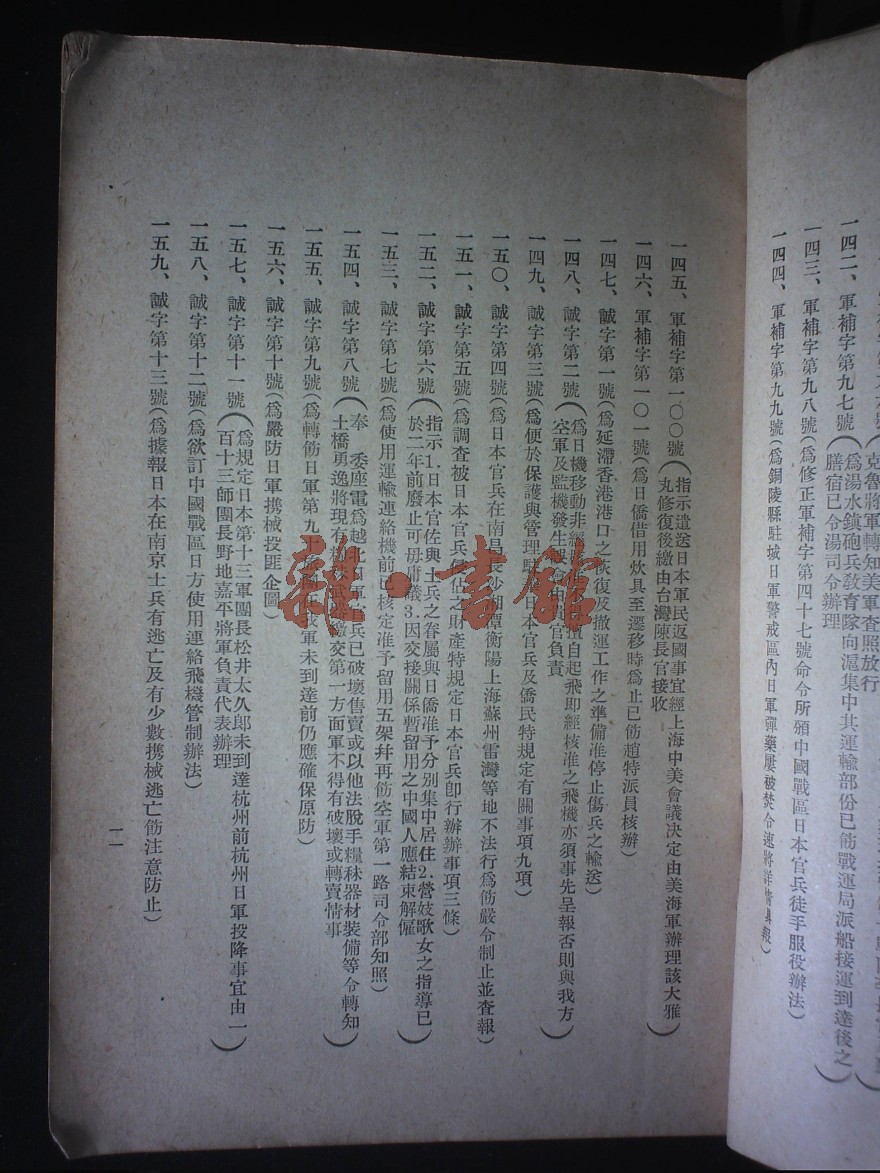 克魯將軍轉知美軍查照放行
一四二、軍補字第九七號(爲湯水鎮砲兵教育隊向滬集中其運輸部份已飭戰運局派船接運到達後之
膳宿已令湯司令辦理)
一四三、軍補字第九八號(爲修正軍補字第四十七號命令所頒中國戰區日本官兵徒手服役辦法)
一四四、軍補字第九九號(爲銅陵縣駐城日軍警戒區內日軍彈藥屢被焚令速將詳情具報)
一四五、軍補字第一〇〇號(指示遣送日本軍民返國事宜經上海中美會議決定由美海軍辦理該大雅
丸修復後繳由台灣陳長官接收)
一四六、軍補字第一〇一號(爲日僑借用炊具至遷移時爲止已飭趙特派員核辦)
一四七、誠字第一號(爲延滯香港港口之恢復及撤運工作之準備准停止傷兵之輸送)
一四八、誠字第二號(爲日機移動非經 擅自起飛即經核准之飛機亦須事先呈報否則與我方
空軍及監機發生 貴官負責)
一四九、誠字第三號(爲便於保護與管理駐 日本官兵及僑民特規定有關事項九項)
一五〇、誠字第四號(爲日本官兵在南昌長沙湘潭衡陽上海蘇州雷灣等地不法行爲飭嚴令制止並查報)
一五一、誠字第五號(爲調查被日本官兵侵佔之財產特規定日本官兵卽行辦辦事項三條)
一五二、誠字第六號(指示1.日本官佐與士兵之眷屬與日僑准予分別集中居住2.營妓歌女之指導已
於二年前廢止可毋庸議3.因交接關係暫留用之中國人應結束解僱)
一五三、誠字第七號(爲使用運輸連絡機前已核定准予留用五架幷再飭空軍第一路司令部知照)
一五四、誠字第八號(奉 委座電爲越北日軍官兵已破壞售賣或以他法脫手糧秣器材裝備等令轉知
土橋勇逸將現有 繳交第一方面軍不得有破壞或轉賣情事)
一五五、誠字第九號(爲轉飭日軍第九 我軍未到達前仍應確保原防)
一五六、誠字第十號(爲嚴防日軍携械投匪企圖)
一五七、誠字第十一號(爲規定日本第十三軍團長松井太久郎未到達杭州前杭州日軍投降事宜由一
百十三師團長野地嘉平將軍負責代表辦理)
一五八、誠字第十二號(爲欲訂中國戰區日方使用連絡飛機管制辦法)
一五九、誠字第十三號(爲據報日本在南京士兵有逃亡及有少數携械逃亡飭注意防止)
一一